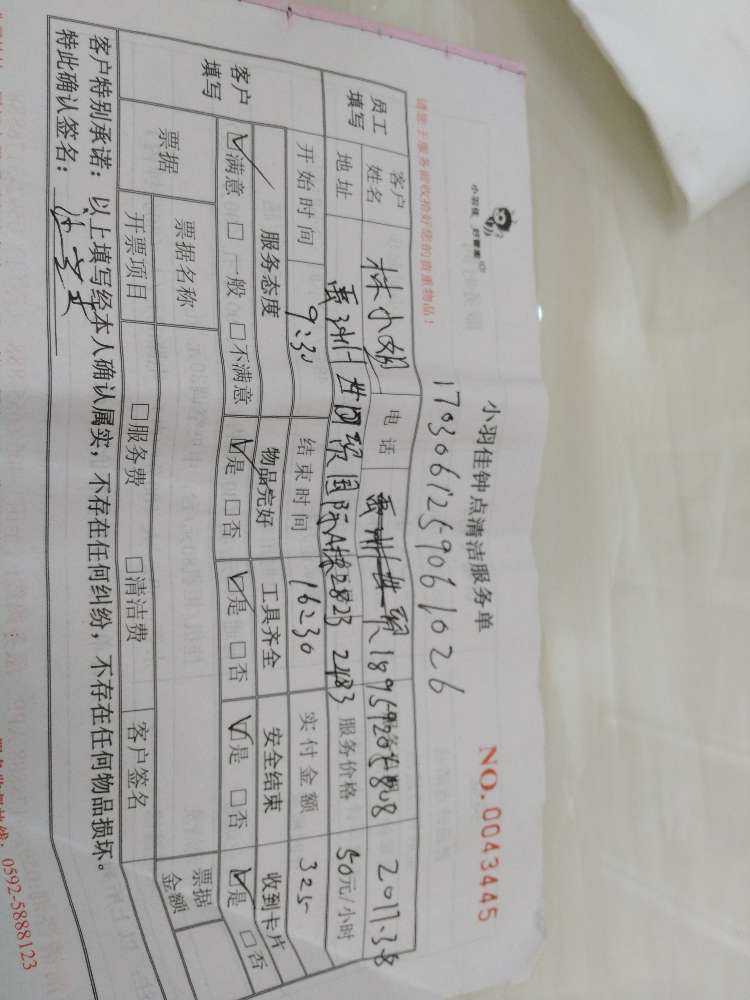 小羽佳 好管家
小羽佳钟点清洁服务单
NO. 0043445
请您于服务前收拾好您的贵重物品!
1703061259061026
员工填写 客户姓名 林小姐 电话 2017.3.8
地址 国际A栋2823 2483 服务价格 50元/小时
开始时间 9:30 结束时间 16:30 实付金额 325
客户填写 服务态度 物品完好 工具齐全 安全结束 收到卡片
☑满意 □一般 □不满意 ☑是 □否 ☑是 □否 ☑是 □否 ☑是 □否
票据 票据名称 票据金额
开票项目 □服务费 □清洁费 客户签名
客户特别承诺:以上填写经本人确认属实,不存在任何纠纷,不存在任何物品损坏。
特此确认签名:
0592-5888123